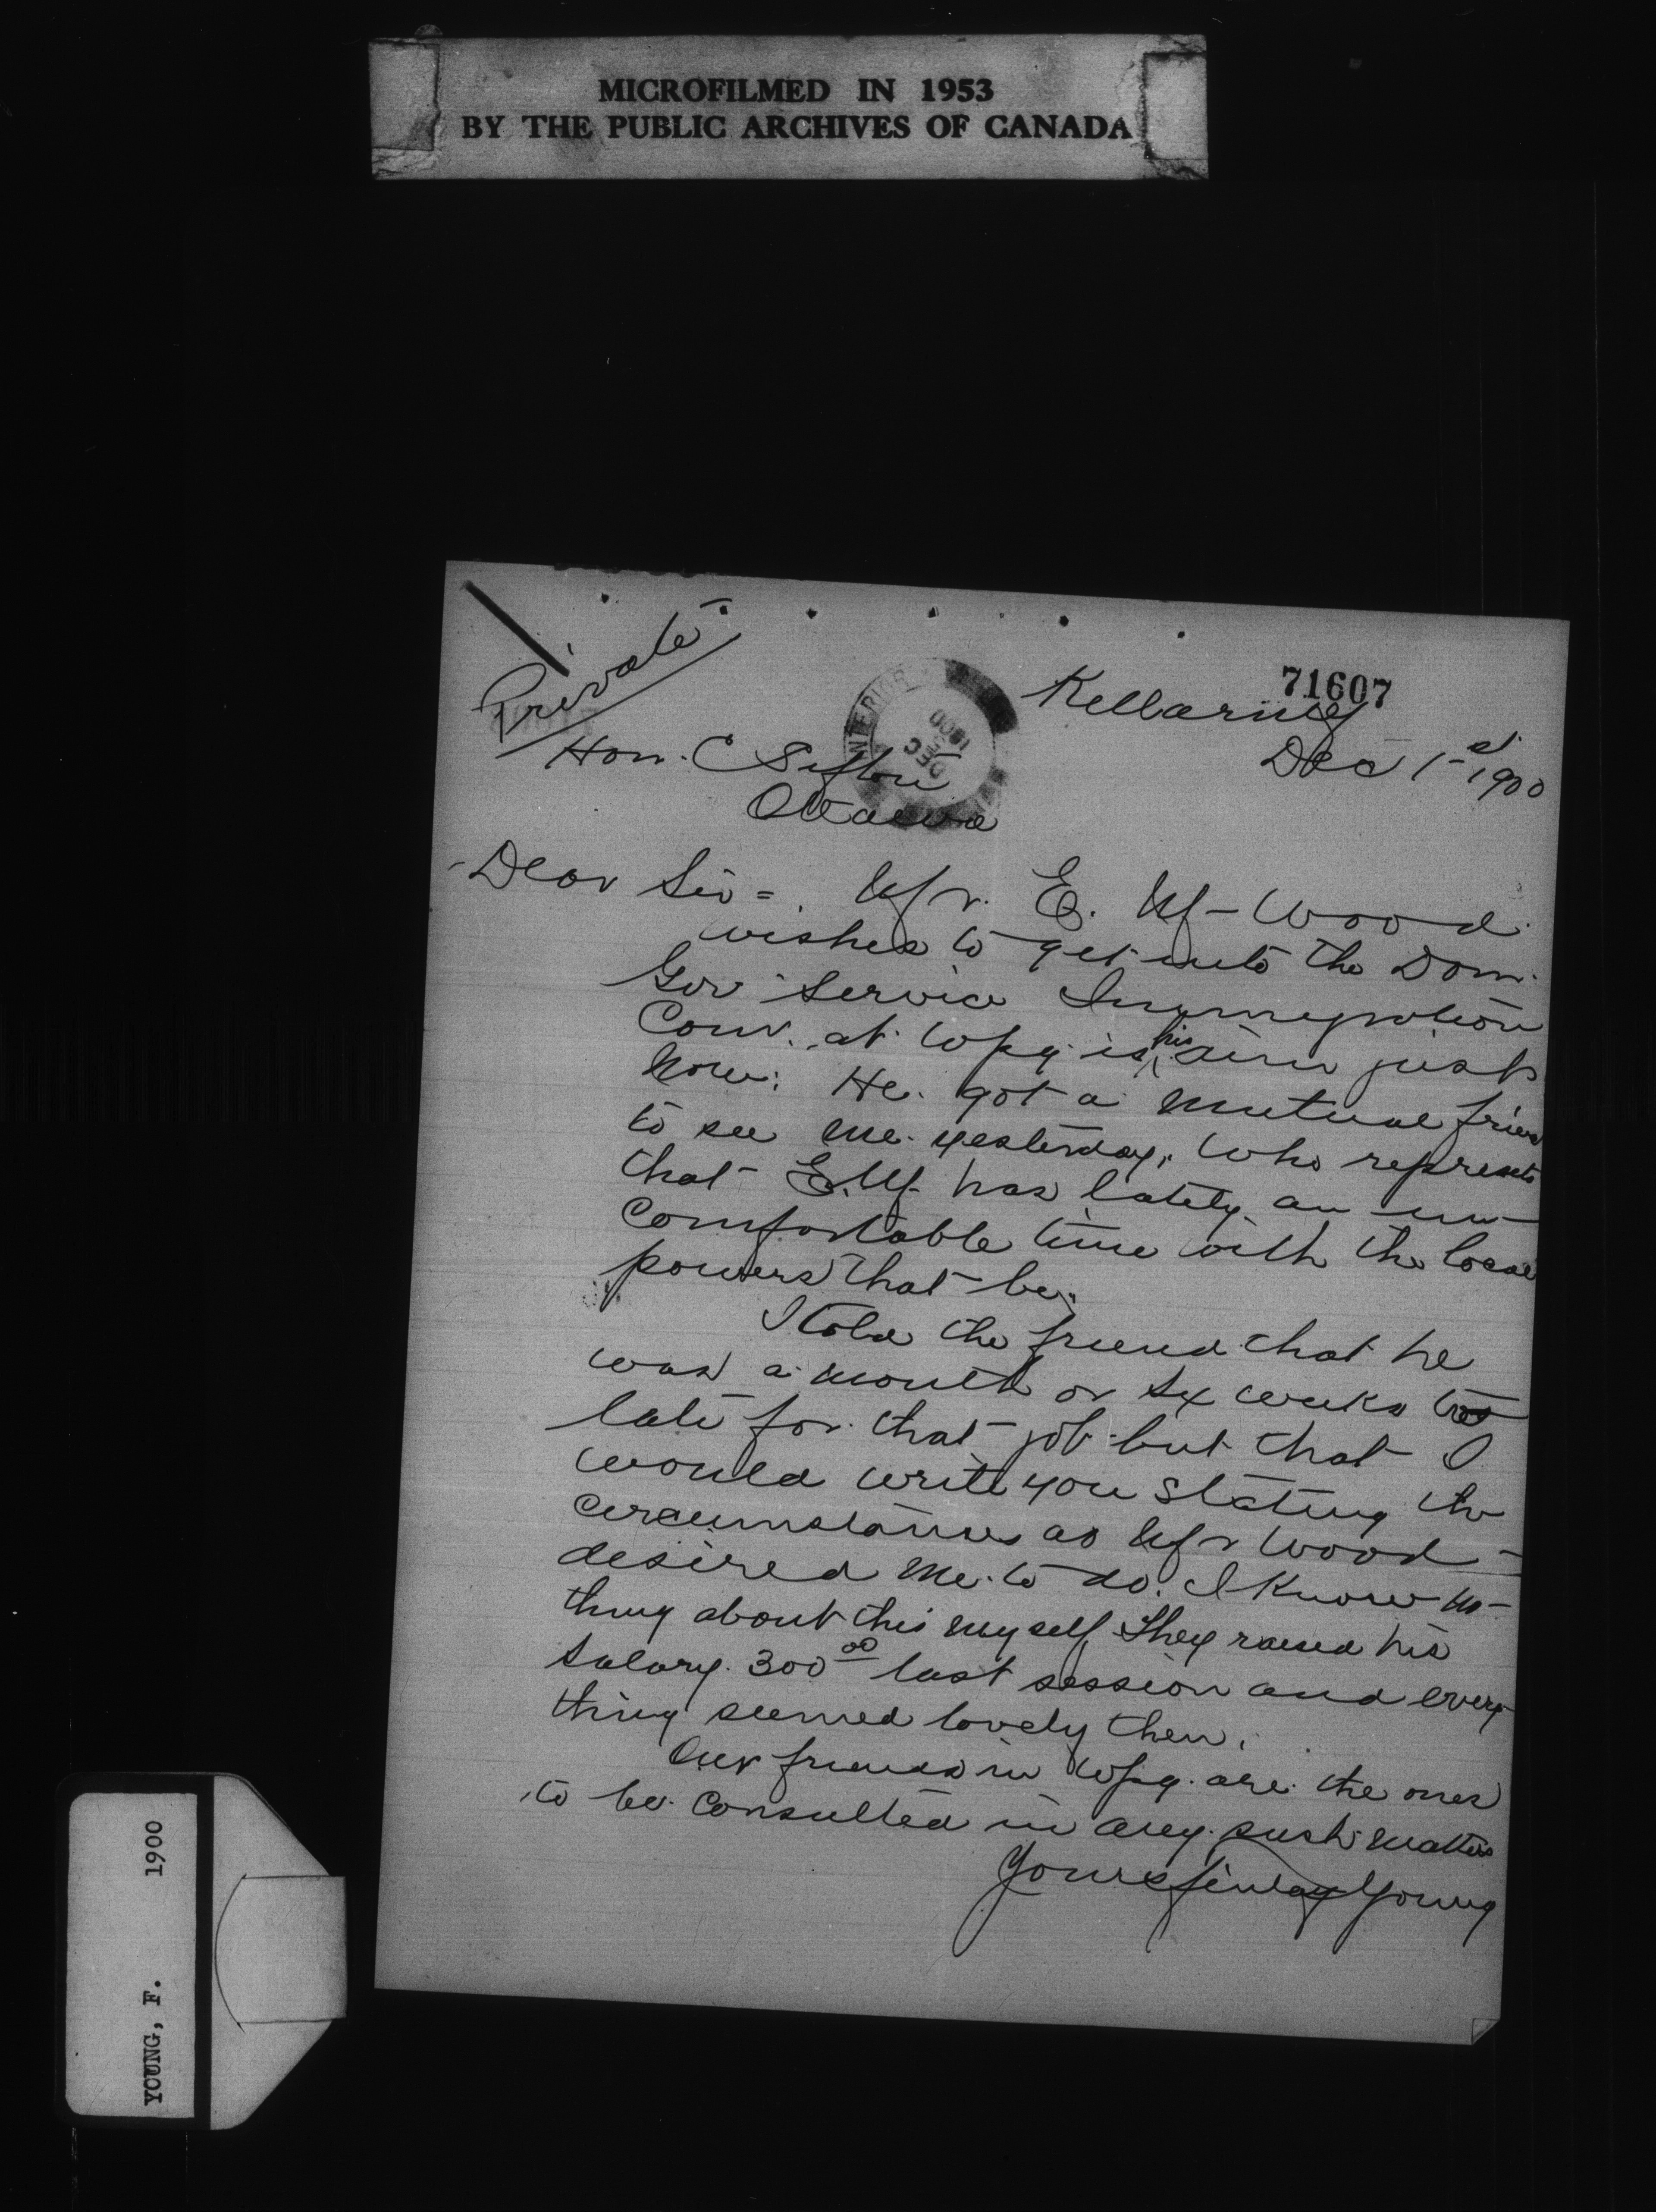 MICROFILMED IN 1953
BY THE PUBLIC ARCHIVES OF CANADA
71607
Private
Killarney
Dec 1st 1900
INTERIOR
DEC
1900
Hon. C Sifton
Ottawa
Dear Sir =. Mr. E. M- Wood
wishes to get into the Dom.
Gov Service Immigration
Com. at Wpg is his aim just
now. He got a mutual friend
to see me yesterday, who represents
that E.M. has lately an un-
comfortable time with the local
powers that be.
I told the friend that he
was a month or six weeks too
late for that job but that I
would write you stating the
circumstances as Mr Wood
desired me to do. I know no-
thing about this myself They raised his
salary 300 00 last session and every
thing seemed lovely then.
Our friends in Wpg. are the ones
to be consulted in any such matters
Yours Finlay Young
YOUNG, F. 1900